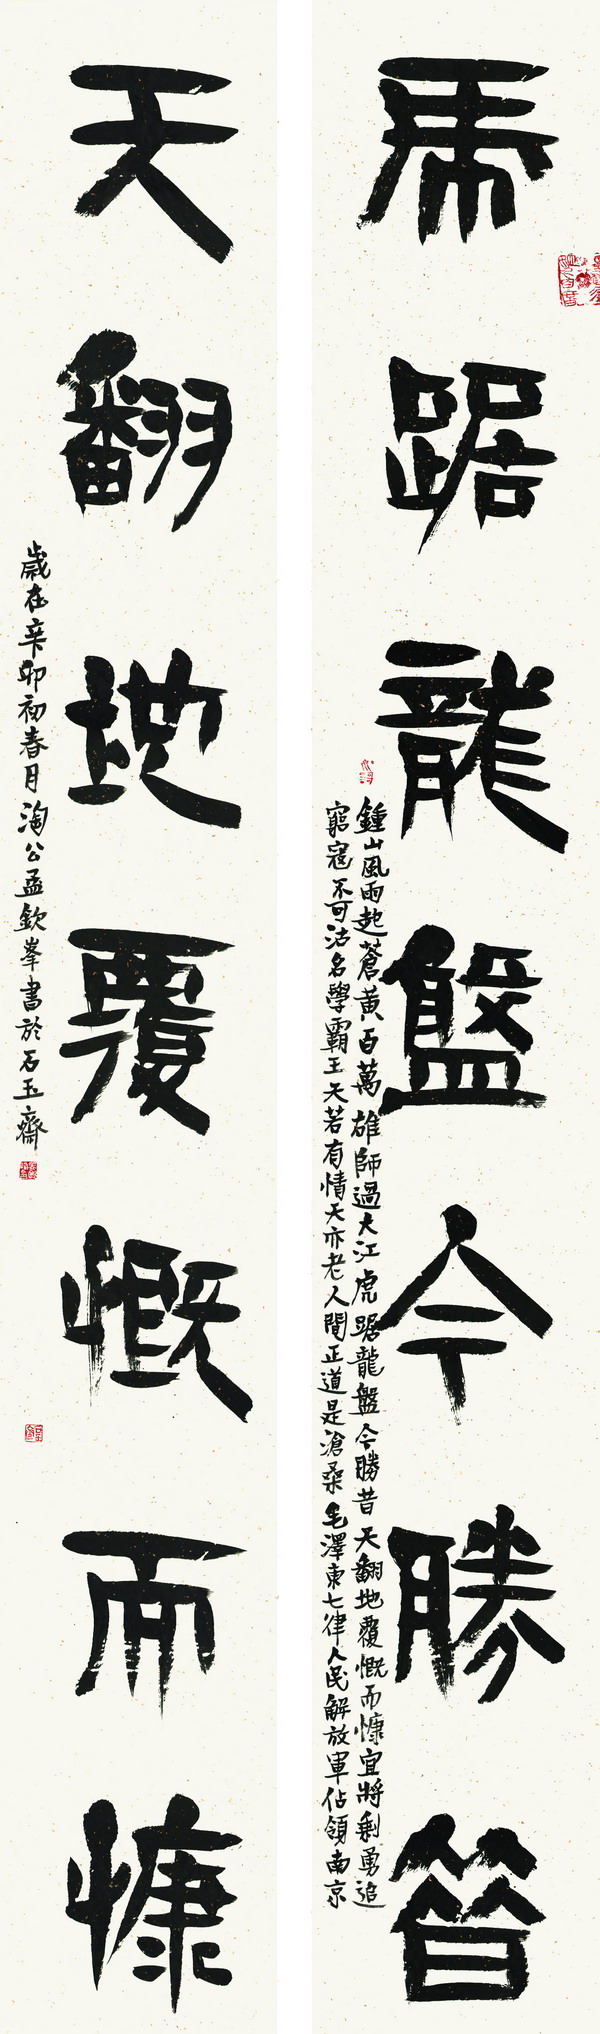 虎踞龍盤今勝昔
鍾山風雨起蒼黃百萬雄師過大江虎踞龍盤今勝昔天翻地覆慨而慷宜將剩勇追
窮寇不可沽名學霸王天若有情天亦老人間正道是滄桑毛澤東七律人民解放軍佔領南京
天翻地覆慨而慷
歲在辛卯初春月淘公孟欽峯書於石玉齋